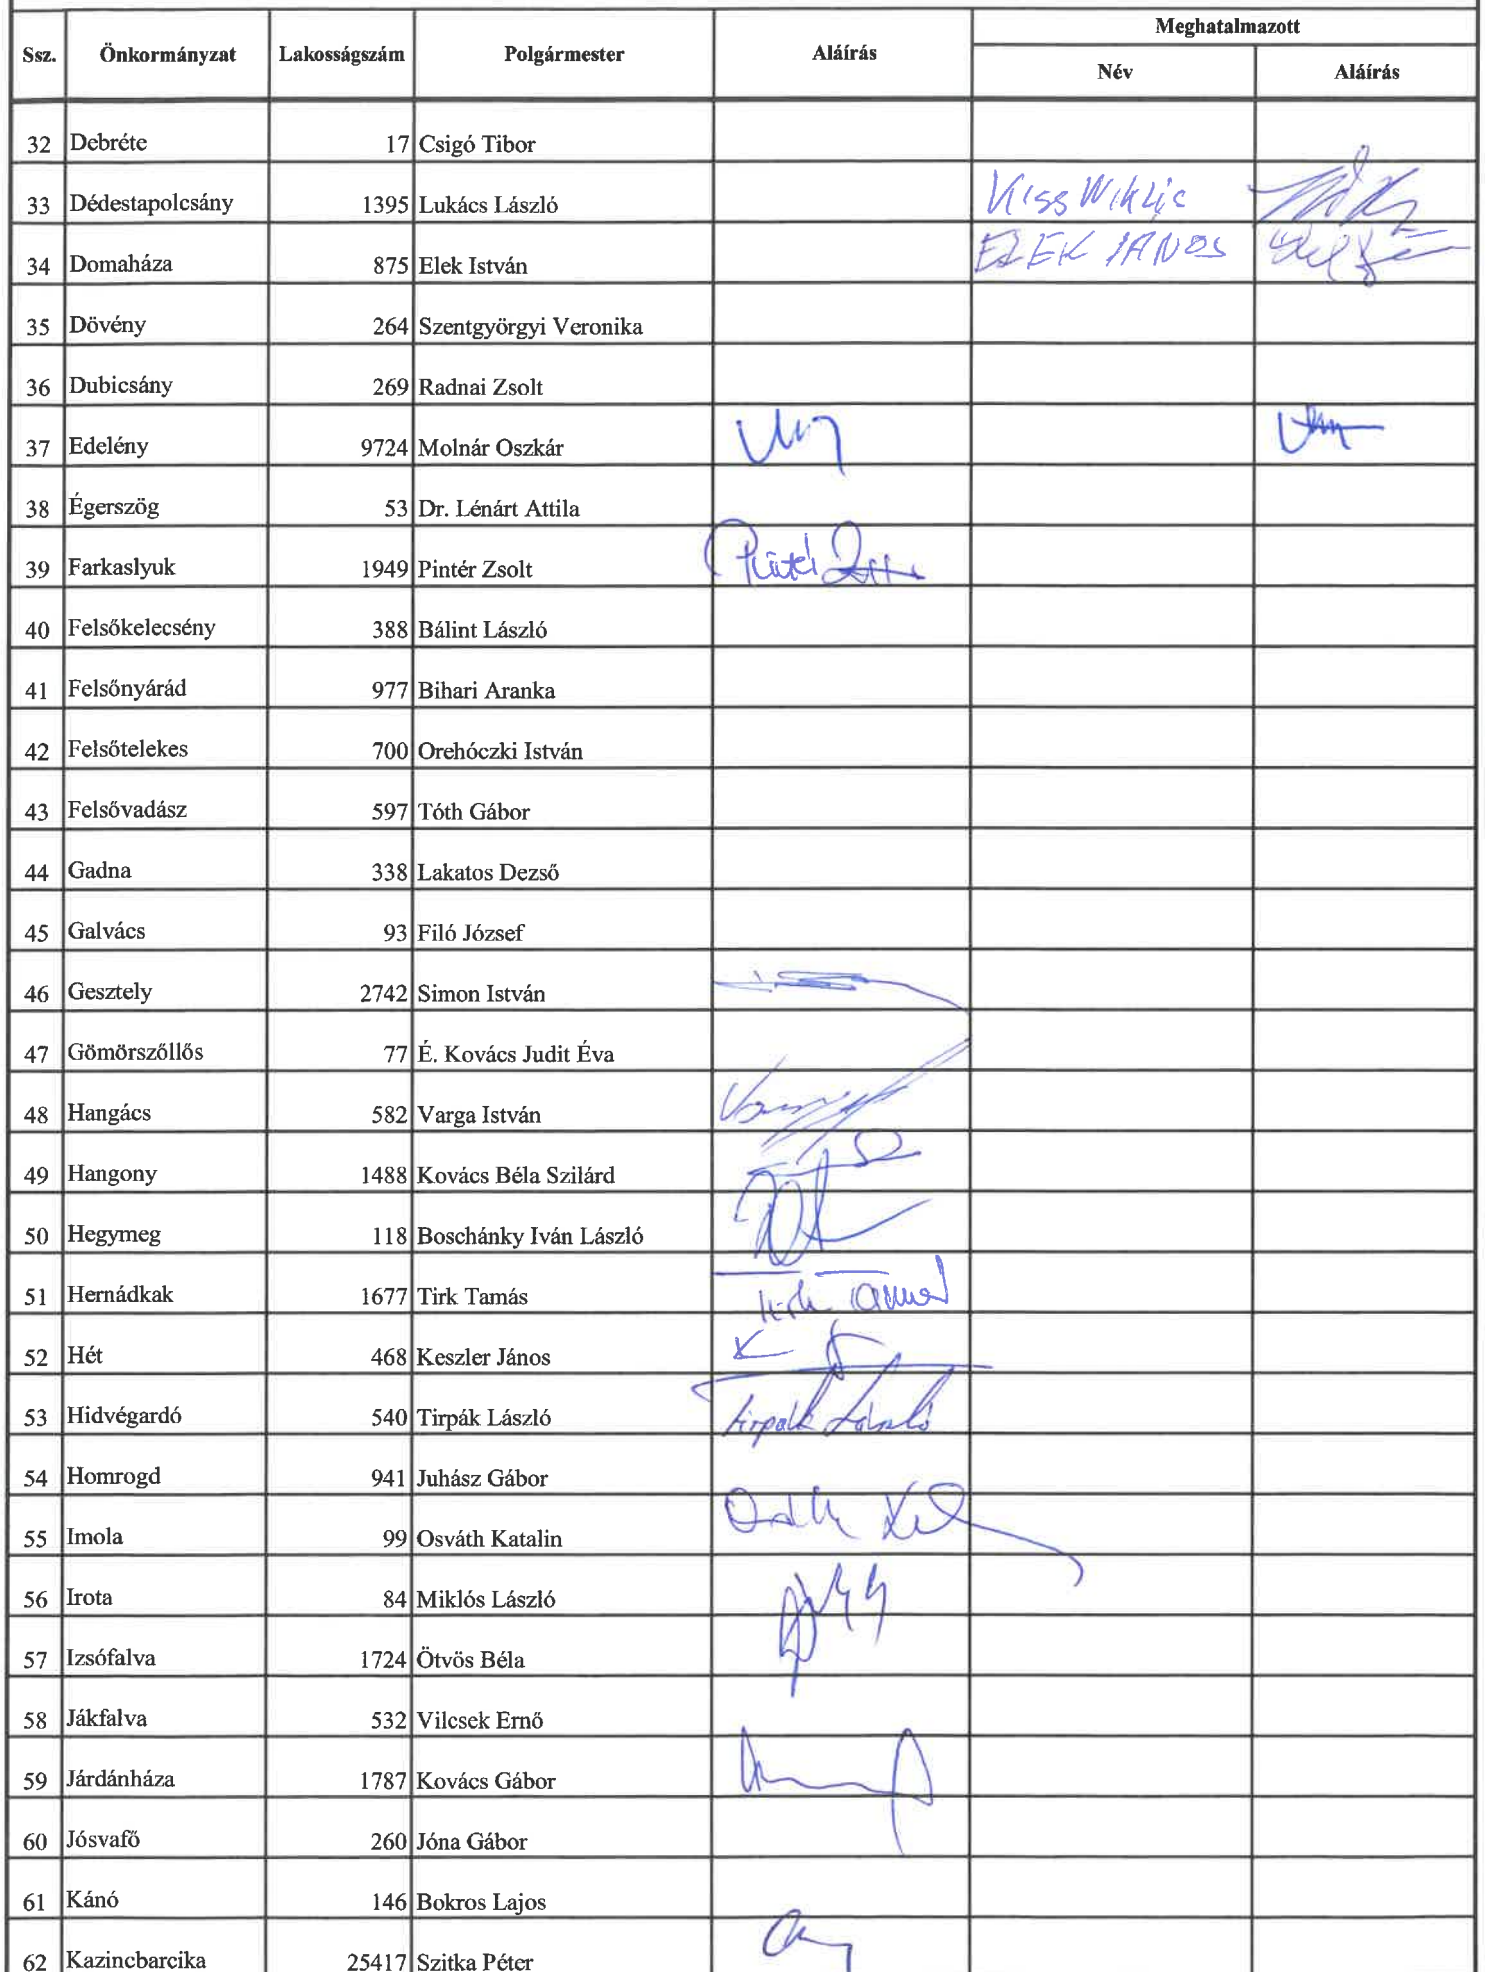 Ssz. Önkormányzat Lakosságszám Polgármester Aláírás Meghatalmazott
Név Aláírás
32 Debréte 17 Csigó Tibor
33 Dédestapolcsány 1395 Lukács László Kiss
34 Domaháza 875 Elek István ELEK JÁNOS
35 Dövény 264 Szentgyörgyi Veronika
36 Dubicsány 269 Radnai Zsolt
37 Edelény 9724 Molnár Oszkár
38 Égerszög 53 Dr. Lénárt Attila
39 Farkaslyuk 1949 Pintér Zsolt Pintér Zsolt
40 Felsőkelecsény 388 Bálint László
41 Felsőnyárád 977 Bihari Aranka
42 Felsőtelekes 700 Orehóczki István
43 Felsővadász 597 Tóth Gábor
44 Gadna 338 Lakatos Dezső
45 Galvács 93 Filó József
46 Gesztely 2742 Simon István
47 Gömörszőllős 77 É. Kovács Judit Éva
48 Hangács 582 Varga István
49 Hangony 1488 Kovács Béla Szilárd
50 Hegymeg 118 Boschánky Iván László
51 Hernádkak 1677 Tirk Tamás Tirk Tamás
52 Hét 468 Keszler János
53 Hidvégardó 540 Tirpák László Tirpák László
54 Homrogd 941 Juhász Gábor
55 Imola 99 Osváth Katalin
56 Irota 84 Miklós László
57 Izsófalva 1724 Ötvös Béla
58 Jákfalva 532 Vilcsek Ernő
59 Járdánháza 1787 Kovács Gábor
60 Jósvafő 260 Jóna Gábor
61 Kánó 146 Bokros Lajos
62 Kazincbarcika 25417 Szitka Péter